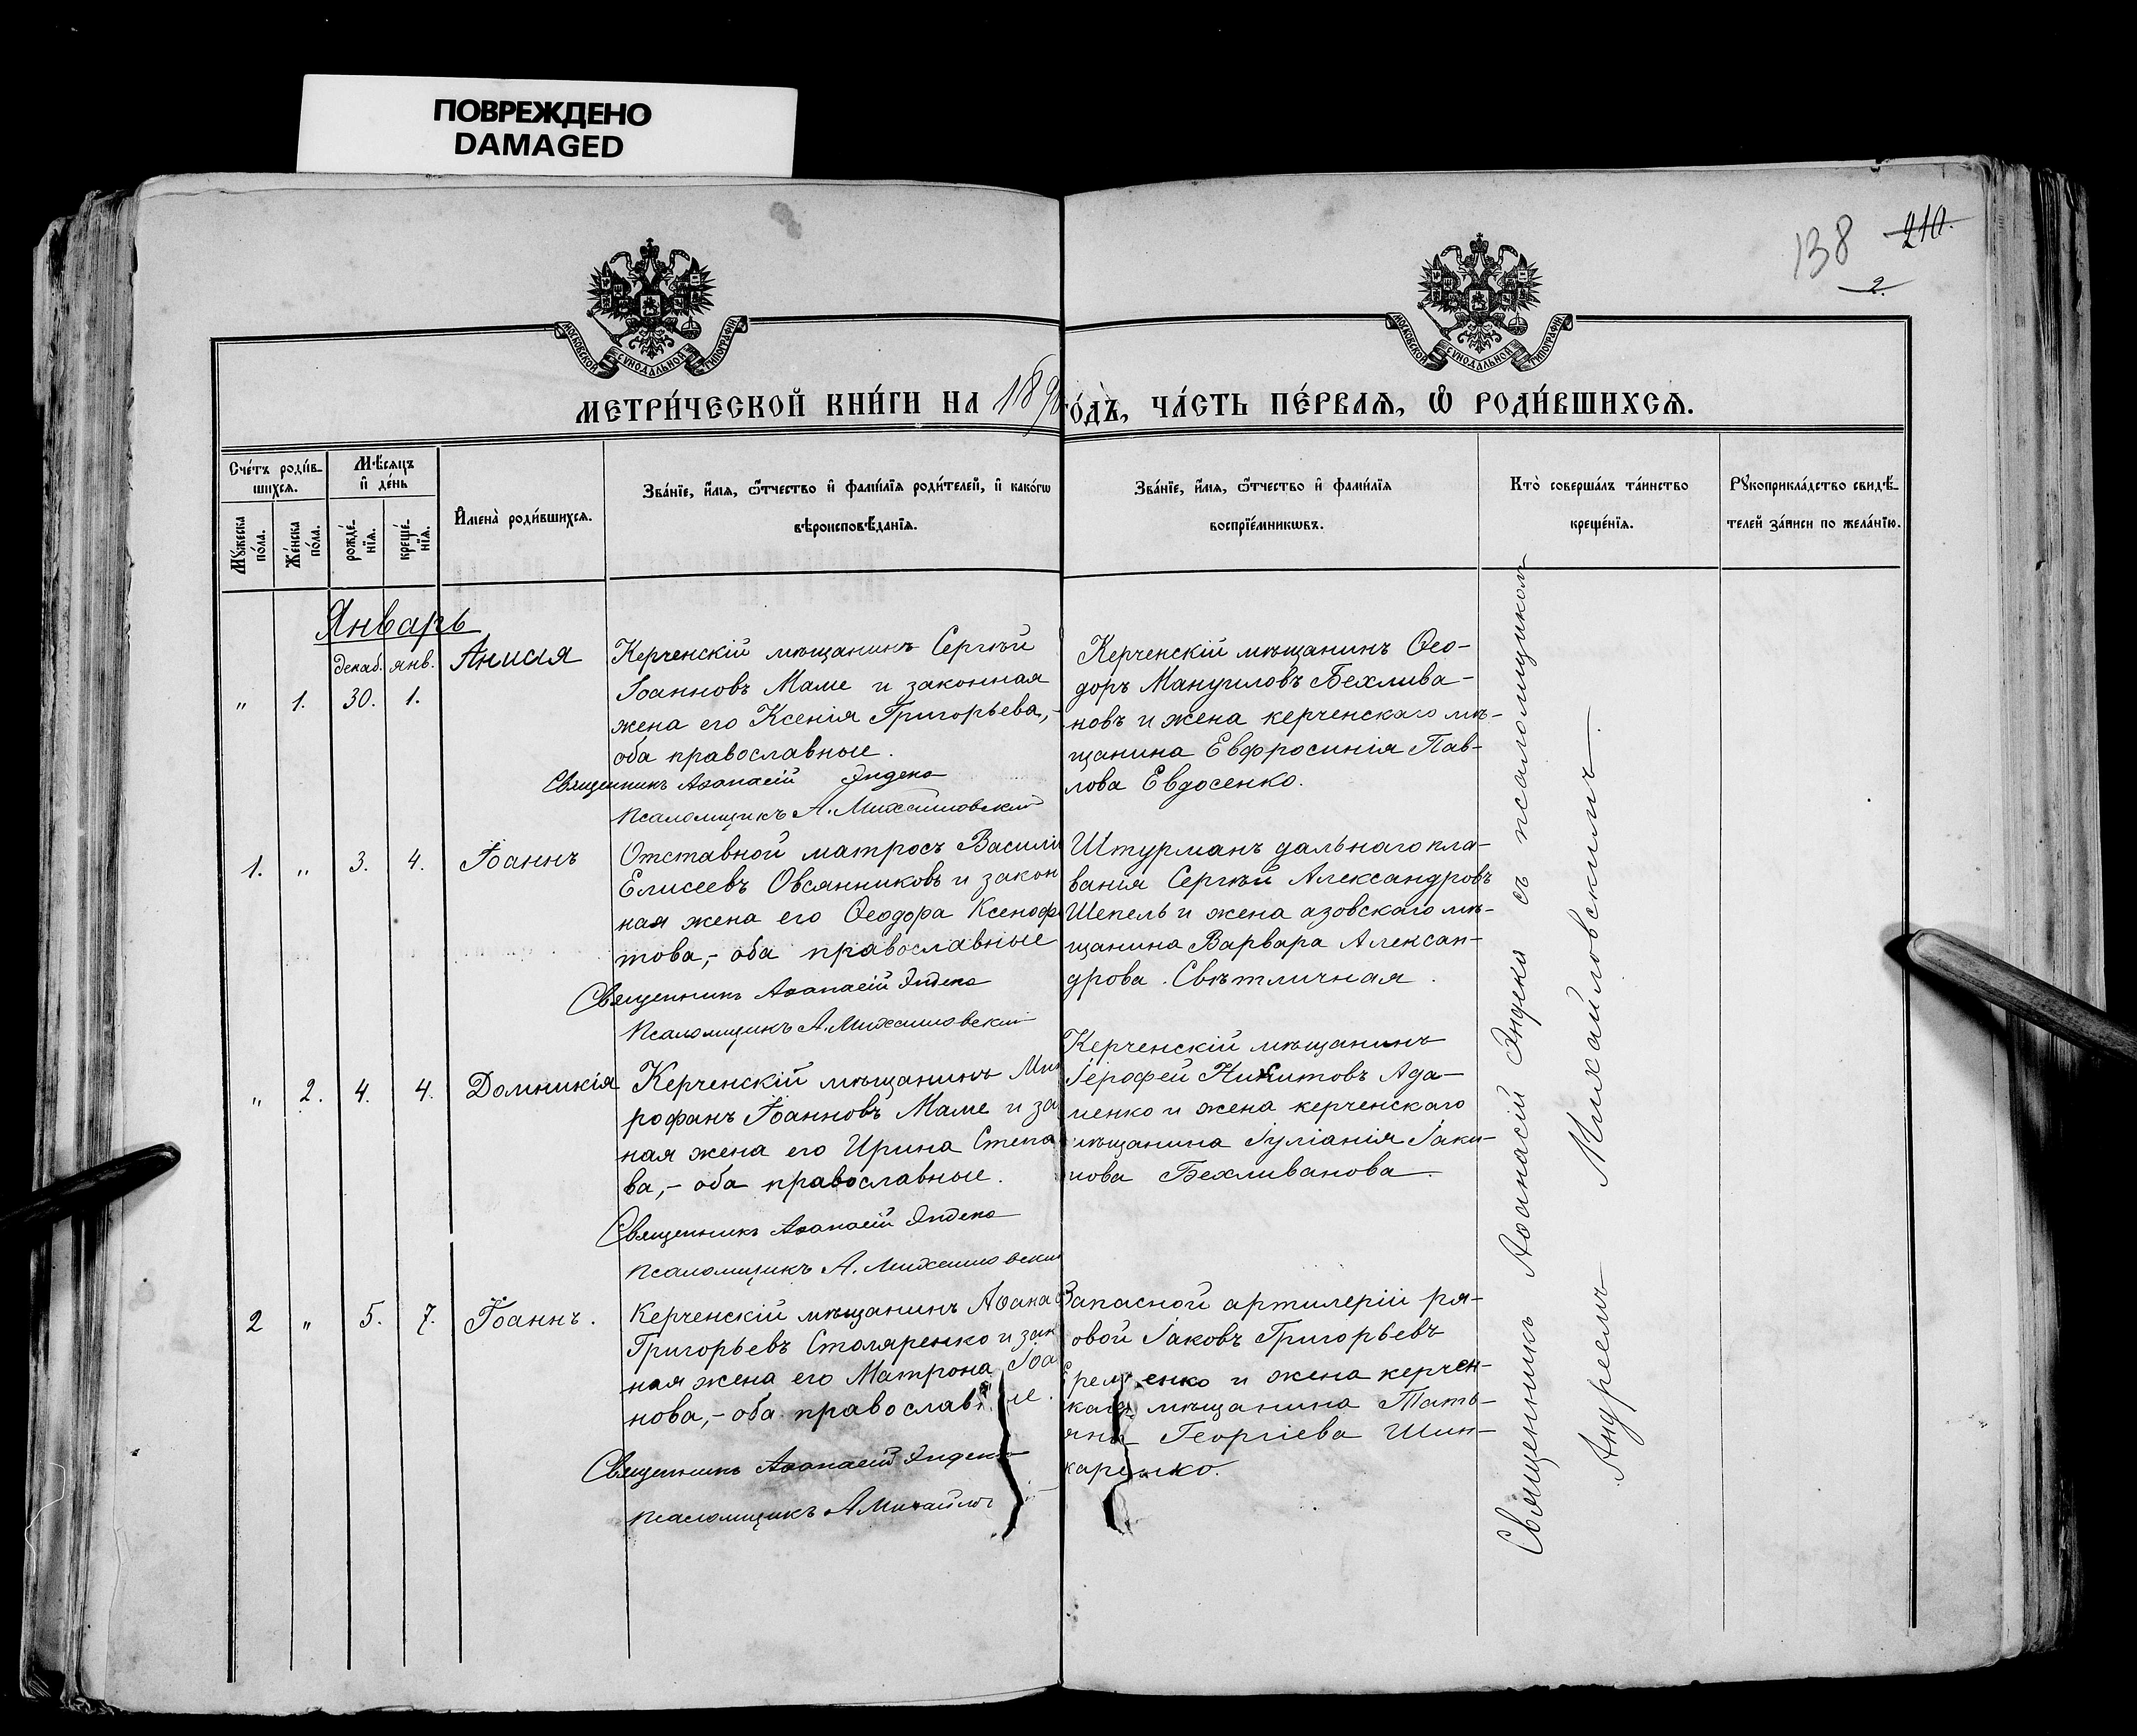 ПОВРЕЖДЕНО
DAMAGED
138 210.
2.
МОСКОВСКОЙ СѴНОДАЛЬНОЙ ТИПОГРАФІИ
МОСКОВСКОЙ СѴНОДАЛЬНОЙ ТИПОГРАФІИ
МЕТРИ́ЧЕСКОЙ КНИ́ГИ НА 189
го́дъ, ЧА́СТЬ ПЕ́РВАѦ, Ѽ РОДИ́ВШИХСѦ.
Сче́тъ роди́в-
шихсѧ.
Мѣ́сѧцъ
и҆ де́нь
Мꙋ́жеска
по́ла.
Же́нска
по́ла.
рожде́-
нїѧ.
креще́-
нїѧ.
И҆мена̀ роди́вшихсѧ.
Зва́нїе, и҆́мѧ, ѻ҆́тчество и҆ фамі́лїѧ роди́телей, и҆ како́гѡ
вѣроисповѣ́данїѧ.
Зва́нїе, и҆́мѧ, ѻ҆́тчество и҆ фами́лїѧ
воспрїе́мникѡвъ.
Кто̀ соверша́лъ та́инство
креще́нїѧ.
Рꙋкоприкла́дство свидѣ́-
телей за́писи по жела́нїю.
Январь
декаб. янв.
" 1. 30. 1.
Анисія
Керченскій мѣщанинъ Сергѣй
Іоанновъ Маме и законная
жена его Ксенія Григорьева,-
оба православные.
Священникъ Аѳанасій Яндека
Псаломщикъ А. Михайловскій
Керченскій мѣщанинъ Ѳео-
доръ Мануиловъ Бехлива-
новъ и жена керченскаго мѣ-
щанина Евфросинія Пав-
лова Евдосенко.
1. " 3. 4. Іоаннъ
Отставной матросъ Васили
Елисеевъ Овсянниковъ и закон
ная жена его Ѳеодора Ксеноф
това,- оба православные
Священникъ Аѳанасій Яндека
Псаломщикъ А. Михайловскій
Штурманъ дальнаго пла-
ванія Сергѣй Александровъ
Шепель и жена азовскаго мѣ-
щанина Варвара Алексан-
дрова Свѣтличная.
" 2. 4. 4. Домникія
Керченскій мѣщанинъ Ми
рофанъ Іоанновъ Маме и за
ная жена его Ирина Степа
ва,- оба православные.
Священникъ Аѳанасій Яндека
Псаломщикъ А. Михайловски
Керченскій мѣщанинъ
Іерофей Никитовъ Ада-
менко и жена керченскаго
мѣщанина Іуліанія Іаки-
мова Бехливанова.
2 " 5. 7. Іоаннъ.
Керченскій мѣщанинъ Аѳана
Григорьевъ Столяренко и зак
ная жена его Матрона Іоа
нова,- оба православ
Священникъ Аѳанасій Яндека
Псаломщикъ А Михайло
Запасной артилеріи ря-
овой Іаковъ Григорьевъ
енко и жена керчен-
каго мѣщанина Тать-
яна Георгіева Шин-
каренко.
Священникъ Аѳанасій Яндека съ псаломщикомъ
Андреемъ Михайловскимъ.